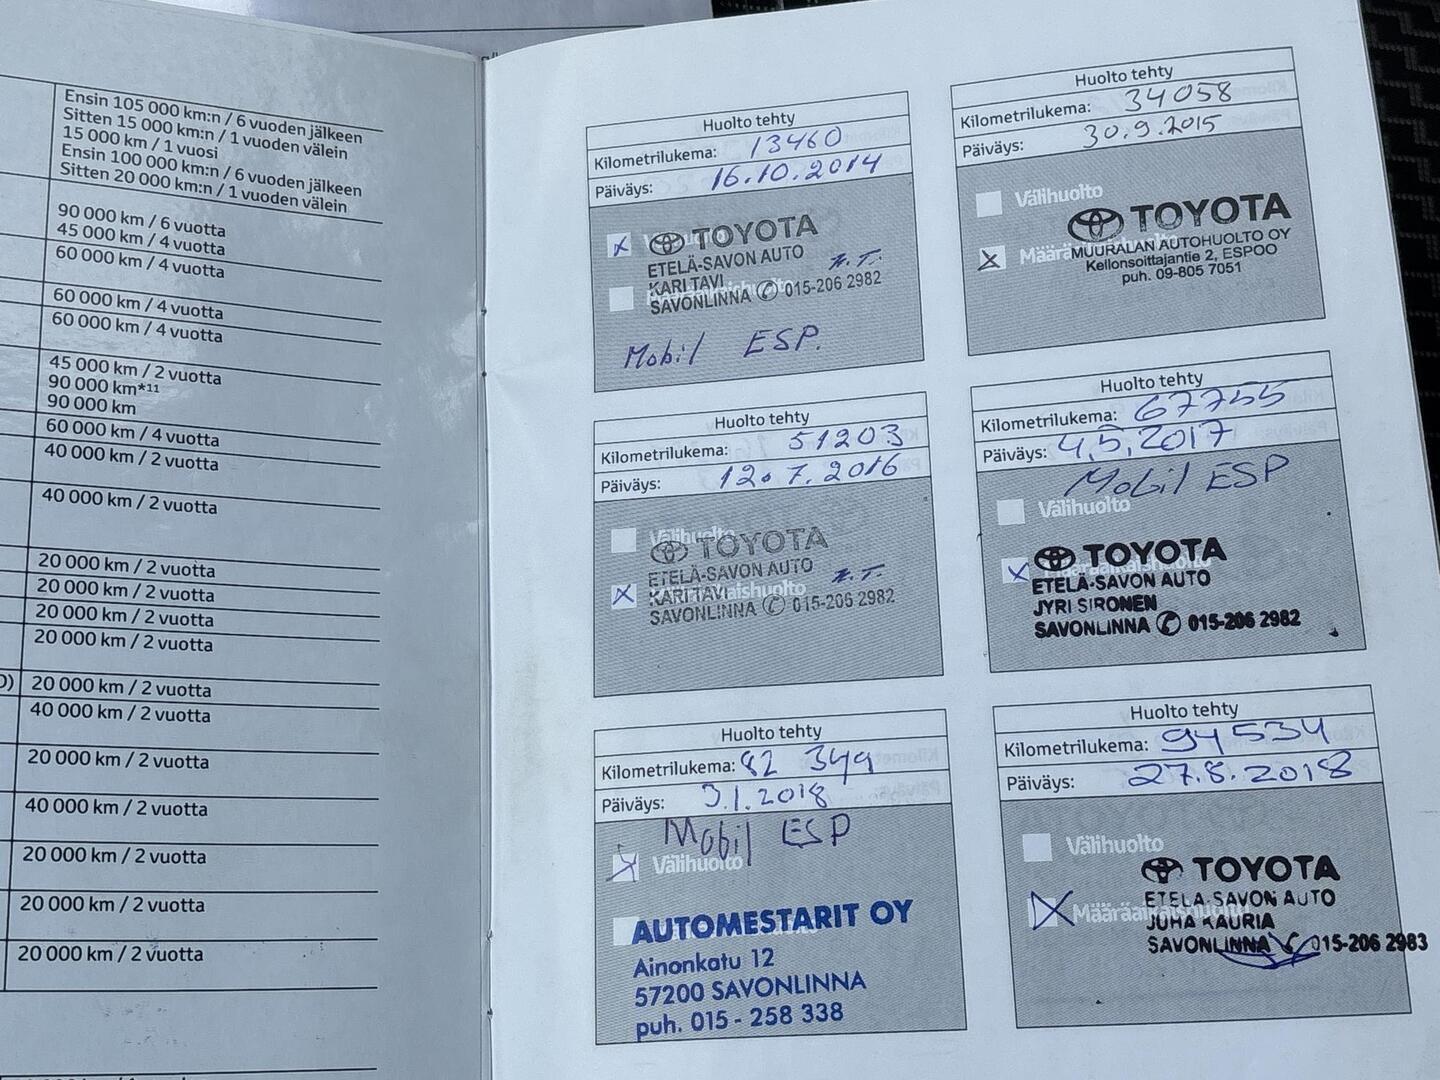 Ensin 105 000 km:n / 6 vuoden jälkeen
Sitten 15 000 km:n / 1 vuoden välein
15 000 km / 1 vuosi
Ensin 100 000 km:n / 6 vuoden jälkeen
Sitten 20 000 km:n / 1 vuoden välein
90 000 km / 6 vuotta
45 000 km / 4 vuotta
60 000 km / 4 vuotta
60 000 km / 4 vuotta
60 000 km / 4 vuotta
45 000 km / 2 vuotta
90 000 km*11
90 000 km
60 000 km / 4 vuotta
40 000 km / 2 vuotta
40 000 km / 2 vuotta
20 000 km / 2 vuotta
20 000 km / 2 vuotta
20 000 km / 2 vuotta
20 000 km / 2 vuotta
20 000 km / 2 vuotta
40 000 km / 2 vuotta
20 000 km / 2 vuotta
40 000 km / 2 vuotta
20 000 km / 2 vuotta
20 000 km / 2 vuotta
20 000 km / 2 vuotta
Huolto tehty
Kilometrilukema: 13460
Päiväys: 16.10.2014
TOYOTA
ETELÄ-SAVON AUTO
KARI TAVI
SAVONLINNA 015-206 2982
Mobil ESP.
Huolto tehty
Kilometrilukema: 34058
Päiväys: 30.9.2015
Välihuolto
TOYOTA
MUURALAN AUTOHUOLTO OY
Kellonsoittajantie 2, ESPOO
puh. 09-805 7051
Huolto tehty
Kilometrilukema: 51203
Päiväys: 12.7.2016
Välihuolto
TOYOTA
ETELÄ-SAVON AUTO
KARI TAVI
SAVONLINNA 015-206 2982
Huolto tehty
Kilometrilukema: 67755
Päiväys: 4.5.2017
Mobil ESP
Välihuolto
TOYOTA
ETELÄ-SAVON AUTO
JYRI SIRONEN
SAVONLINNA 015-206 2982
Huolto tehty
Kilometrilukema: 82 349
Päiväys: 3.1.2018
Mobil ESP
Välihuolto
AUTOMESTARIT OY
Ainonkatu 12
57200 SAVONLINNA
puh. 015 - 258 338
Huolto tehty
Kilometrilukema: 94534
Päiväys: 27.8.2018
Välihuolto
TOYOTA
ETELÄ-SAVON AUTO
Määräaikaishuolto
JUHA KAURIA
SAVONLINNA 015-206 2983